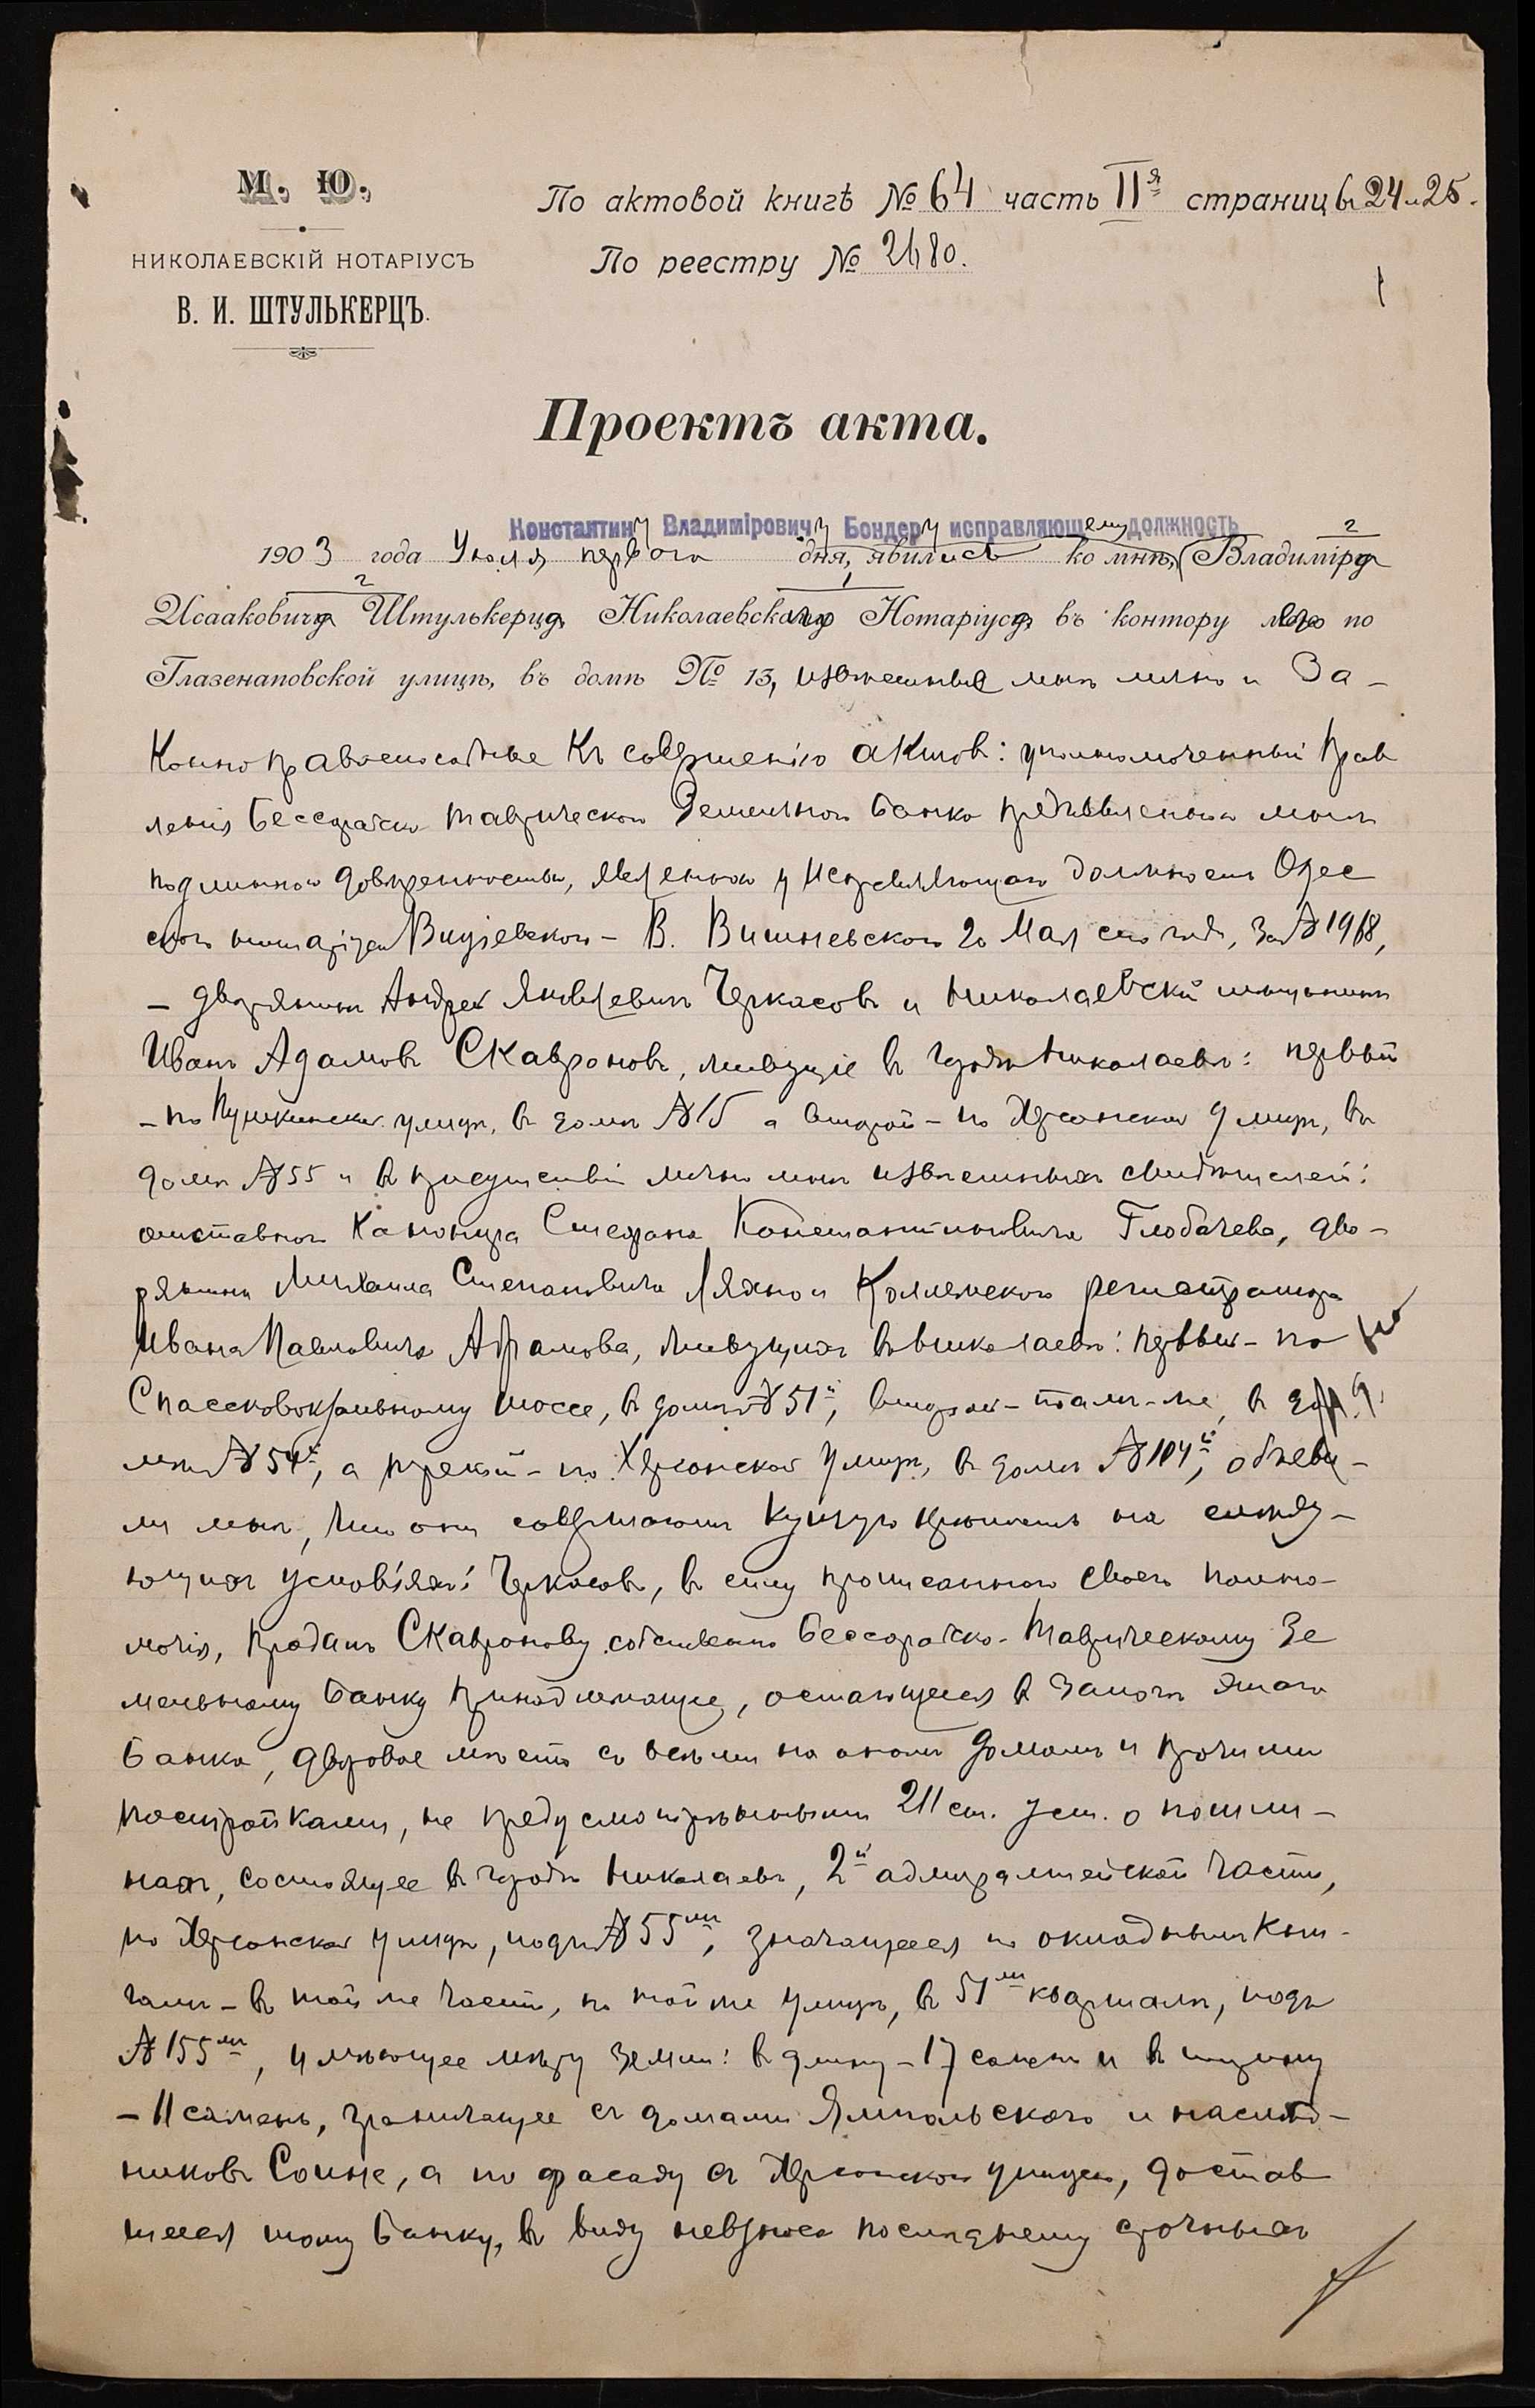 М. Ю.
НИКОЛАЕВСКІЙ НОТАРІУСЪ
В. И. ШТУЛЬКЕРЦЪ.
По актовой книгѣ № 64 часть IIя страницы 24 и 25.
По реестру № 2480.
Проектъ акта.
Константину Владиміровичу Бондеру исправляющему должность
1903 года Іюля перваго дня, явились ко мнѣ, Владиміра
Исааковича Штулькерца, Николаевскаго Нотаріуса, въ контору его по
Глазенаповской улицѣ, въ домѣ № 13, извѣстные мнѣ лично и За-
конноправоспособные къ совершенію актовъ: уполномоченный Прав
ленія Бессарабско Таврическаго Земельнаго банка предъявленной мнѣ
подлинной довѣренностью, явленной у Исправляющаго должность Одес
скаго нотаріуса В. Вишневскаго 20 Мая сего года, за № 1968,
– дворянинъ Андрей Яковлевичъ Черкасовъ и Николаевскій мѣщанинъ
Иванъ Адамовъ Скавроновъ, живущіе въ городѣ Николаевѣ: первый
– по Пушкинской улицѣ, въ домѣ № 15 а второй – по Херсонской улицѣ, въ
домѣ № 55 и въ присутствіи лично мнѣ извѣстныхъ свидѣтелей:
отставного Канонира Стефана Константиновича Глобачева, дво-
рянина Михаила Степановича Ляхно и Коллежскаго регистратора
Ивана Павловича Абрамова, живущихъ въ Николаевѣ: первый – по
Спасскому шоссе, въ домѣ № 51й, второй – тамъ-же, въ до
мѣ № 54й, а третій – по Херсонской улицѣ, въ домѣ № 104й, объяви-
ли мнѣ, что они совершаютъ купчую крѣпость на слѣду-
ющихъ условіяхъ: Черкасовъ, въ силу прописаннаго своего полно-
мочія, продалъ Скавронову собственно Бессарабско-Таврическому Зе
мельному банку принадлежащее, остающееся въ залогѣ этого
банка, дворовое мѣсто со всѣми на ономъ домами и прочими
постройками, не предусмотрѣнными 211 ст. уст. о пошли-
нахъ, состоящее въ городѣ Николаевѣ, 2й адмиралтейской части,
по Херсонской улицѣ, подъ № 55ми, значащееся по окладнымъ кни-
гамъ – въ той же части, по той же улицѣ, въ 51мъ кварталѣ, подъ
№ 155мъ, имѣющее мѣру земли: въ длину – 17 сажень и въ ширину
– 11 сажень, граничащее съ домами Ямпольскаго и наслѣд-
никовъ Сонне, а по фасаду съ Херсонской улицей, достав
шееся тому банку, въ виду невзноса послѣднему срочныхъ